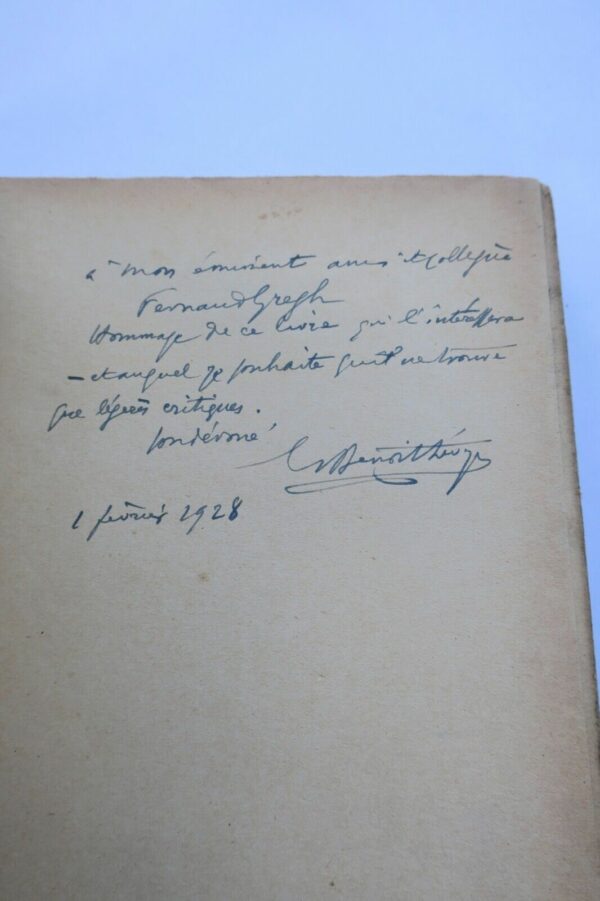 à mon éminent ami et collègue
Fernand Gregh
Hommage de ce livre qui l'intéressera
– et auquel je souhaite qu'il ne trouve
que légères critiques.
son dévoué
Benoit Lévy
1 février 1928